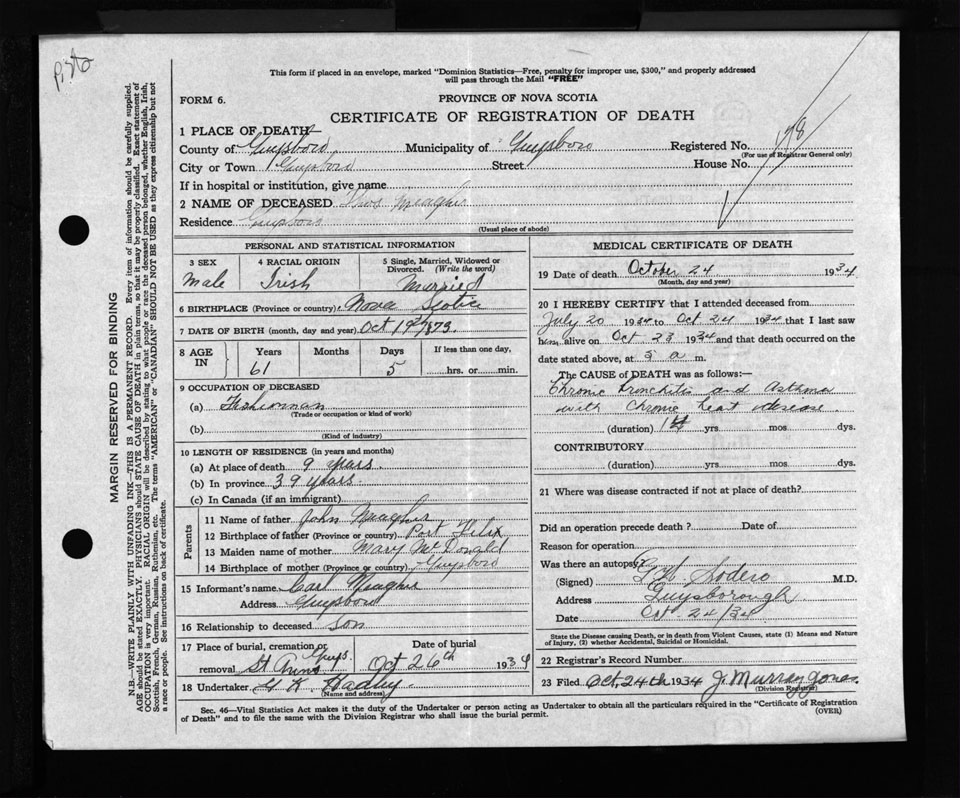 This form if placed in an envelope, marked "Dominion Statistics—Free, penalty for improper use, $300," and properly addressed
will pass through the Mail "FREE"
FORM 6.
PROVINCE OF NOVA SCOTIA
CERTIFICATE OF REGISTRATION OF DEATH
178
1 PLACE OF DEATH—
County of Guysboro Municipality of Guysboro Registered No.
(For use of Registrar General only)
City or Town Guysboro Street House No.
If in hospital or institution, give name
2 NAME OF DECEASED Thos Meagher
Residence Guysboro
(Usual place of abode)
PERSONAL AND STATISTICAL INFORMATION
3 SEX 4 RACIAL ORIGIN 5 Single, Married, Widowed or
Divorced. (Write the word)
Male Irish Married
6 BIRTHPLACE (Province or country) Nova Scotia
7 DATE OF BIRTH (month, day and year) Oct 19 1873
8 AGE IN Years Months Days If less than one day,
61 5 hrs. or min.
9 OCCUPATION OF DECEASED
(a) Fisherman
(Trade or occupation or kind of work)
(b)
(Kind of industry)
10 LENGTH OF RESIDENCE (in years and months)
(a) At place of death 9 years
(b) In province 39 years
(c) In Canada (if an immigrant)
Parents
11 Name of father John Meagher
12 Birthplace of father (Province or country) Port Felix
13 Maiden name of mother Mary McDonald
14 Birthplace of mother (Province or country) Guysboro
15 Informant's name Carl Meagher
Address Guysboro
16 Relationship to deceased son
17 Place of burial, cremation or Date of burial
Guys.
removal St Anns Oct 26th 1934
18 Undertaker Hadley
(Name and address)
MEDICAL CERTIFICATE OF DEATH
19 Date of death October 24 1934
(Month, day and year)
20 I HEREBY CERTIFY that I attended deceased from
July 20 1934 to Oct 24 1934 that I last saw
him alive on Oct 23 1934 and that death occurred on the
date stated above, at 5 a m.
The CAUSE of DEATH was as follows:—
Chronic bronchitis and Asthma
with chronic heat disease
(duration) yrs mos dys.
CONTRIBUTORY
(duration) yrs mos dys.
21 Where was disease contracted if not at place of death?
Did an operation precede death? Date of
Reason for operation
Was there an autopsy?
(Signed) Sodero M.D.
Address Guysborough
Date Oct 24/34
State the Disease causing Death, or in death from Violent Causes, state (1) Means and Nature
of Injury, (2) whether Accidental, Suicidal or Homicidal.
22 Registrar's Record Number
23 Filed Oct 24th 1934 J. Murray Jones
(Division Registrar)
Sec. 46—Vital Statistics Act makes it the duty of the Undertaker or person acting as Undertaker to obtain all the particulars required in the "Certificate of Registration
of Death" and to file the same with the Division Registrar who shall issue the burial permit.
(OVER)
MARGIN RESERVED FOR BINDING
N.B.—WRITE PLAINLY WITH UNFADING INK—THIS IS A PERMANENT RECORD. Every item of information should be carefully supplied.
AGE should be stated EXACTLY. PHYSICIANS should STATE CAUSE OF DEATH in plain terms, so that it may be properly classified. Exact statement of
OCCUPATION is very important. RACIAL ORIGIN will be described by stating to what people or race the deceased person belonged, whether English, Irish,
Scottish, French, German, Russian, Ruthenian, etc. The terms "AMERICAN" or "CANADIAN" SHOULD NOT BE USED as they express citizenship but not
a race or people. See instructions on back of certificate.